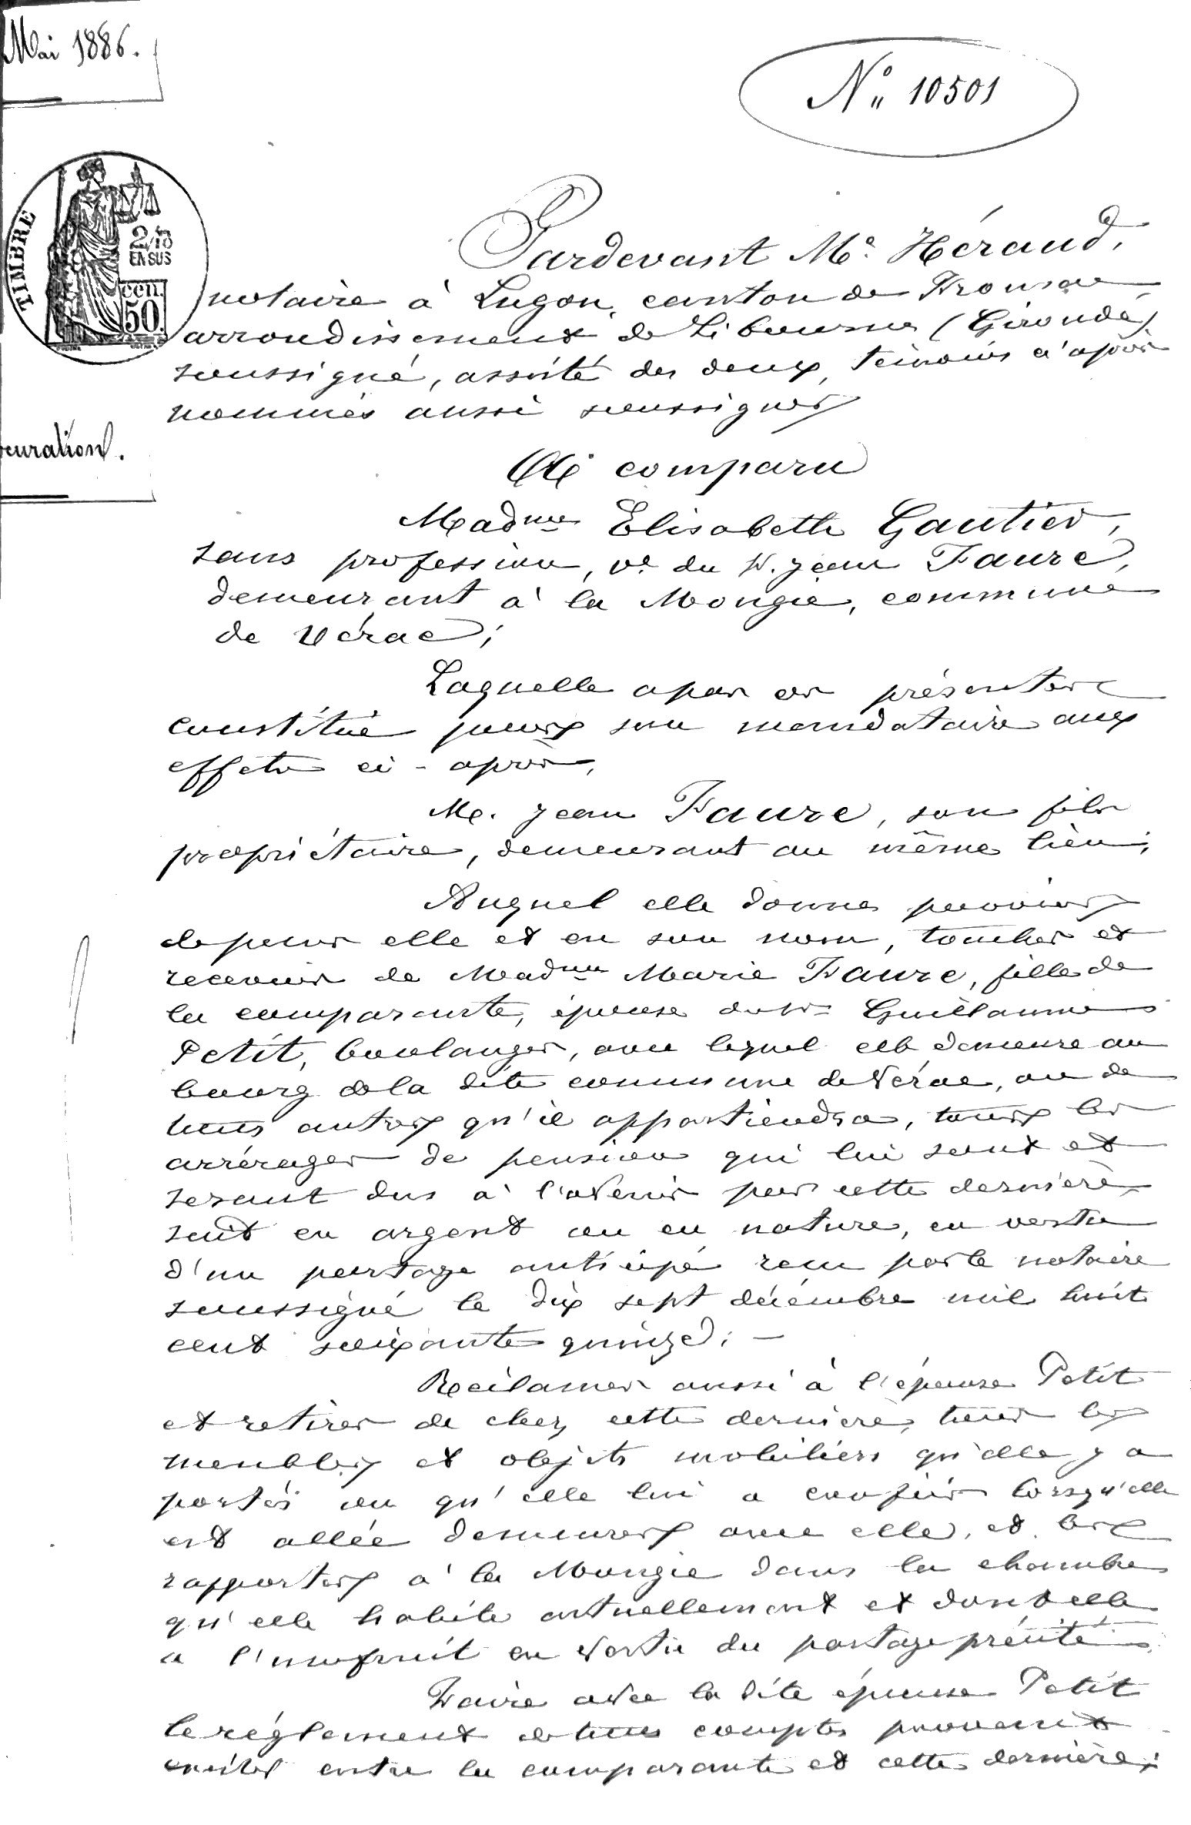 Mai 1886.
N° 10501
TIMBRE
2/10
EN SUS
cen.
50.
Pardevant Me Héraud,
notaire à Lugon, canton de Fronsac
arrondissement de Libourne (Gironde)
soussigné, assisté des deux témoins ci après
nommés aussi soussignés
A comparu
Madme Elisabeth Gautier,
sans profession, ve du Sr. Jean Faure,
demeurant à la Mongie, commune
de Vérac;
Laquelle a par ces présentes
constitué pour son mandataire aux
effets ci-après,
M. Jean Faure, son fils
propriétaire, demeurant au même lieu;
Auquel elle donne pouvoir
de pour elle et en son nom, toucher et
recevoir de Madme Marie Faure, fille de
la comparante, épouse du Sr Guillaume
Petit, boulanger, avec lequel elle demeure au
bourg de la dite commune de Vérac, ou de
tous autres qu'il appartiendra, tous les
arrérages de pension qui lui sont et
seront dus à l'avenir par cette dernière,
soit en argent ou en nature, en vertu
d'un partage anticipé reçu par le notaire
soussigné le dix sept décembre mil huit
cent soixante quinze; —
Réclamer aussi à l'épouse Petit
et retirer de chez cette dernière, tous les
meubles et objets mobiliers qu'elle y a
portés ou qu'elle lui a confiés lorsqu'elle
est allée demeurer avec elle, et les
rapporter à la Mongie dans la chambre
qu'elle habite actuellement et dont elle
a l'usufruit en vertu du partage précité
Faire avec la dite épouse Petit
le règlement de tous comptes pouvant
exister entre la comparante et cette dernière;
curation.